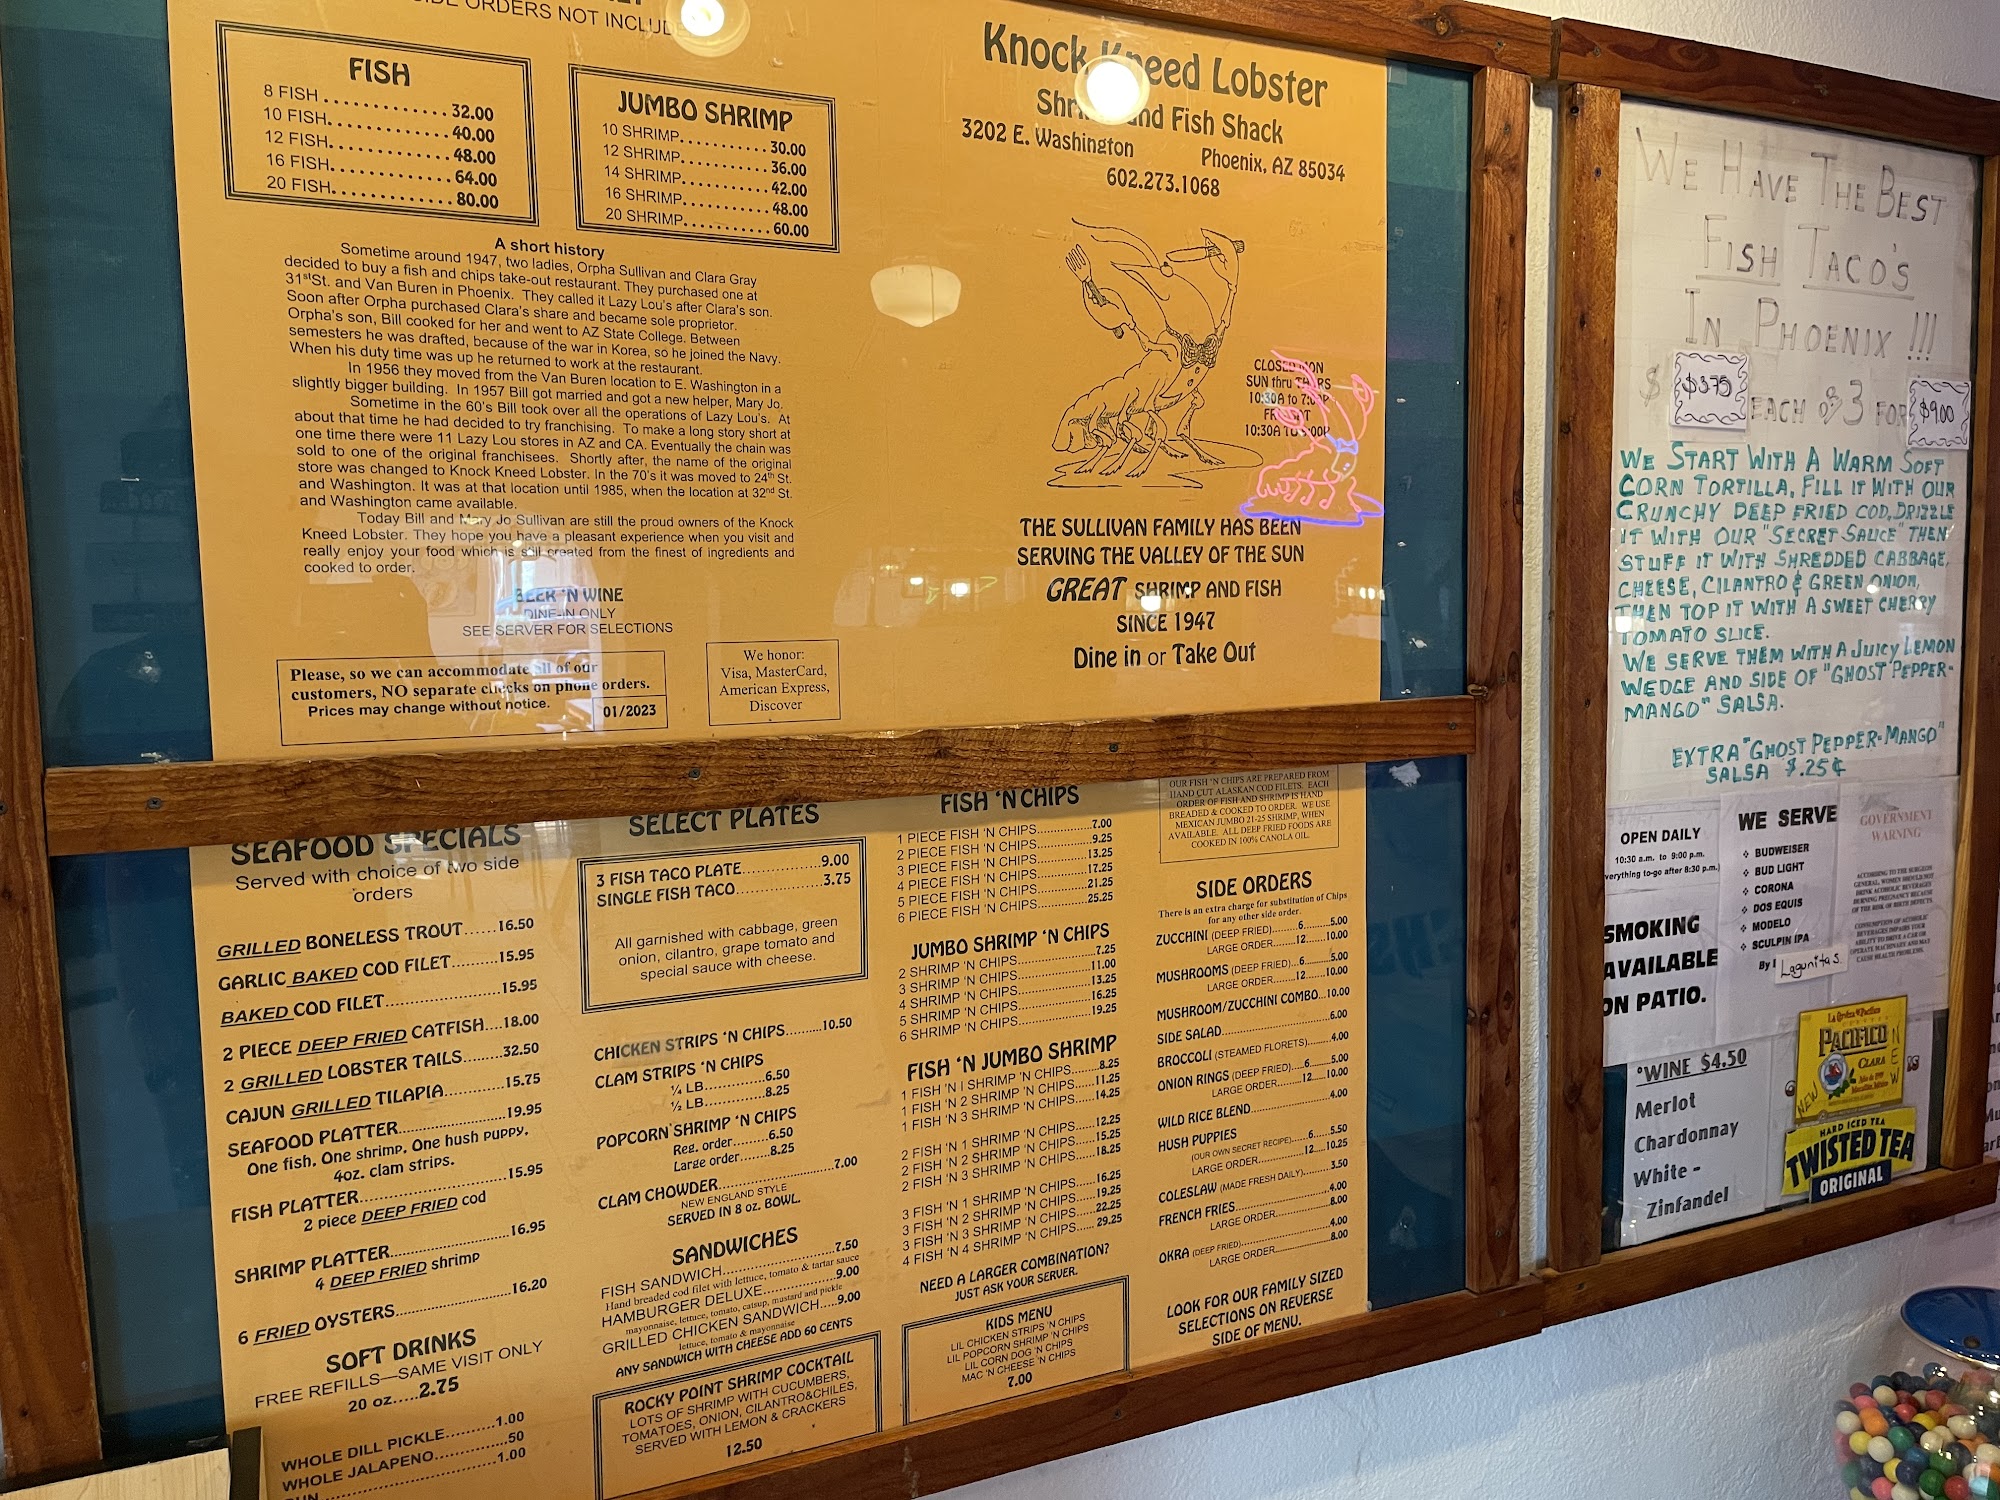 SIDE ORDERS NOT INCLUDED
FISH
8 FISH 32.00
10 FISH 40.00
12 FISH 48.00
16 FISH 64.00
20 FISH 80.00
JUMBO SHRIMP
10 SHRIMP 30.00
12 SHRIMP 36.00
14 SHRIMP 42.00
16 SHRIMP 48.00
20 SHRIMP 60.00
A short history
Sometime around 1947, two ladies, Orpha Sullivan and Clara Gray
decided to buy a fish and chips take-out restaurant. They purchased one at
31st St. and Van Buren in Phoenix. They called it Lazy Lou's after Clara's son.
Soon after Orpha purchased Clara's share and became sole proprietor.
Orpha's son, Bill cooked for her and went to AZ State College. Between
semesters he was drafted, because of the war in Korea, so he joined the Navy.
When his duty time was up he returned to work at the restaurant.
In 1956 they moved from the Van Buren location to E. Washington in a
slightly bigger building. In 1957 Bill got married and got a new helper, Mary Jo.
Sometime in the 60's Bill took over all the operations of Lazy Lou's. At
about that time he had decided to try franchising. To make a long story short at
one time there were 11 Lazy Lou stores in AZ and CA. Eventually the chain was
sold to one of the original franchisees. Shortly after, the name of the original
store was changed to Knock Kneed Lobster. In the 70's it was moved to 24th St.
and Washington. It was at that location until 1985, when the location at 32nd St.
and Washington came available.
Today Bill and Mary Jo Sullivan are still the proud owners of the Knock
Kneed Lobster. They hope you have a pleasant experience when you visit and
really enjoy your food which is still created from the finest of ingredients and
cooked to order.
BEER 'N WINE
DINE-IN ONLY
SEE SERVER FOR SELECTIONS
Please, so we can accommodate all of our
customers, NO separate checks on phone orders.
Prices may change without notice. 01/2023
We honor:
Visa, MasterCard,
American Express,
Discover
Knock Kneed Lobster
Shrimp and Fish Shack
3202 E. Washington Phoenix, AZ 85034
602.273.1068
CLOSED MON
SUN thru THURS
10:30A to 7:00P
FRI SAT
10:30A TO 8:00P
THE SULLIVAN FAMILY HAS BEEN
SERVING THE VALLEY OF THE SUN
GREAT SHRIMP AND FISH
SINCE 1947
Dine in or Take Out
SEAFOOD SPECIALS
Served with choice of two side
orders
GRILLED BONELESS TROUT......16.50
GARLIC BAKED COD FILET.........15.95
BAKED COD FILET...................15.95
2 PIECE DEEP FRIED CATFISH....18.00
2 GRILLED LOBSTER TAILS........32.50
CAJUN GRILLED TILAPIA............15.75
SEAFOOD PLATTER..................19.95
One fish. One shrimp. One hush puppy.
4oz. clam strips.
FISH PLATTER.......................15.95
2 piece DEEP FRIED cod
SHRIMP PLATTER...................16.95
4 DEEP FRIED shrimp
6 FRIED OYSTERS...................16.20
SOFT DRINKS
FREE REFILLS—SAME VISIT ONLY
20 oz.....2.75
WHOLE DILL PICKLE..........1.00
WHOLE JALAPENO..............50
1.00
SELECT PLATES
3 FISH TACO PLATE.............9.00
SINGLE FISH TACO..............3.75
All garnished with cabbage, green
onion, cilantro, grape tomato and
special sauce with cheese.
CHICKEN STRIPS 'N CHIPS.........10.50
CLAM STRIPS 'N CHIPS
¼ LB...............6.50
½ LB...............8.25
POPCORN SHRIMP 'N CHIPS
Reg. order........6.50
Large order........8.25
CLAM CHOWDER....................7.00
NEW ENGLAND STYLE
SERVED IN 8 oz. BOWL.
SANDWICHES
FISH SANDWICH....................7.50
Hand breaded cod filet with lettuce, tomato & tartar sauce
HAMBURGER DELUXE..............9.00
mayonnaise, lettuce, tomato, catsup, mustard and pickle
GRILLED CHICKEN SANDWICH....9.00
lettuce, tomato & mayonnaise
ANY SANDWICH WITH CHEESE ADD 60 CENTS
ROCKY POINT SHRIMP COCKTAIL
LOTS OF SHRIMP WITH CUCUMBERS,
TOMATOES, ONION, CILANTRO&CHILES,
SERVED WITH LEMON & CRACKERS
12.50
FISH 'N CHIPS
1 PIECE FISH 'N CHIPS..................7.00
2 PIECE FISH 'N CHIPS..................9.25
3 PIECE FISH 'N CHIPS.................13.25
4 PIECE FISH 'N CHIPS.................17.25
5 PIECE FISH 'N CHIPS.................21.25
6 PIECE FISH 'N CHIPS.................25.25
JUMBO SHRIMP 'N CHIPS
2 SHRIMP 'N CHIPS.....................7.25
3 SHRIMP 'N CHIPS....................11.00
4 SHRIMP 'N CHIPS....................13.25
5 SHRIMP 'N CHIPS....................16.25
6 SHRIMP 'N CHIPS....................19.25
FISH 'N JUMBO SHRIMP
1 FISH 'N 1 SHRIMP 'N CHIPS.......8.25
1 FISH 'N 2 SHRIMP 'N CHIPS.....11.25
1 FISH 'N 3 SHRIMP 'N CHIPS.....14.25
2 FISH 'N 1 SHRIMP 'N CHIPS.....12.25
2 FISH 'N 2 SHRIMP 'N CHIPS.....15.25
2 FISH 'N 3 SHRIMP 'N CHIPS.....18.25
3 FISH 'N 1 SHRIMP 'N CHIPS.....16.25
3 FISH 'N 2 SHRIMP 'N CHIPS.....19.25
3 FISH 'N 3 SHRIMP 'N CHIPS.....22.25
4 FISH 'N 4 SHRIMP 'N CHIPS.....29.25
NEED A LARGER COMBINATION?
JUST ASK YOUR SERVER.
KIDS MENU
LIL CHICKEN STRIPS 'N CHIPS
LIL POPCORN SHRIMP 'N CHIPS
LIL CORN DOG 'N CHIPS
MAC 'N CHEESE 'N CHIPS
7.00
OUR FISH 'N CHIPS ARE PREPARED FROM
HAND CUT ALASKAN COD FILETS. EACH
ORDER OF FISH AND SHRIMP IS HAND
BREADED & COOKED TO ORDER. WE USE
MEXICAN JUMBO 21-25 SHRIMP, WHEN
AVAILABLE. ALL DEEP FRIED FOODS ARE
COOKED IN 100% CANOLA OIL.
SIDE ORDERS
There is an extra charge for substitution of Chips
for any other side order.
ZUCCHINI (DEEP FRIED)........6.......5.00
LARGE ORDER.......12.......10.00
MUSHROOMS (DEEP FRIED)...6........5.00
LARGE ORDER.......12.......10.00
MUSHROOM/ZUCCHINI COMBO...10.00
SIDE SALAD...........................6.00
BROCCOLI (STEAMED FLORETS).......4.00
ONION RINGS (DEEP FRIED)....6......5.00
LARGE ORDER.......12......10.00
WILD RICE BLEND.....................4.00
HUSH PUPPIES
(OUR OWN SECRET RECIPE)......6......5.50
LARGE ORDER.......12......10.25
COLESLAW (MADE FRESH DAILY).......3.50
FRENCH FRIES.........................4.00
LARGE ORDER..................8.00
OKRA (DEEP FRIED)....................4.00
LARGE ORDER..................8.00
LOOK FOR OUR FAMILY SIZED
SELECTIONS ON REVERSE
SIDE OF MENU.
WE HAVE THE BEST
FISH TACO'S
IN PHOENIX !!!
$ $3.75 EACH or 3 FOR $9.00
WE START WITH A WARM SOFT
CORN TORTILLA, FILL IT WITH OUR
CRUNCHY DEEP FRIED COD, DRIZZLE
IT WITH OUR "SECRET SAUCE" THEN
STUFF IT WITH SHREDDED CABBAGE,
CHEESE, CILANTRO & GREEN ONION,
THEN TOP IT WITH A SWEET CHERRY
TOMATO SLICE.
WE SERVE THEM WITH A JUICY LEMON
WEDGE AND SIDE OF "GHOST PEPPER-
MANGO" SALSA.
EXTRA "GHOST PEPPER-MANGO"
SALSA $.25¢
OPEN DAILY
10:30 a.m. to 9:00 p.m.
verything to-go after 8:30 p.m.)
SMOKING
AVAILABLE
ON PATIO.
WE SERVE
❖ BUDWEISER
❖ BUD LIGHT
❖ CORONA
❖ DOS EQUIS
❖ MODELO
❖ SCULPIN IPA
By Lagunitas
GOVERNMENT
WARNING
ACCORDING TO THE SURGEON
GENERAL, WOMEN SHOULD NOT
DRINK ALCOHOLIC BEVERAGES
DURING PREGNANCY BECAUSE
OF THE RISK OF BIRTH DEFECTS.
CONSUMPTION OF ALCOHOLIC
BEVERAGES IMPAIRS YOUR
ABILITY TO DRIVE A CAR OR
OPERATE MACHINERY AND MAY
CAUSE HEALTH PROBLEMS.
*WINE $4.50
Merlot
Chardonnay
White -
Zinfandel
La Cerveza del Pacifico
PACIFICO
CLARA
NEW
NEW
HARD ICED TEA
TWISTED TEA
ORIGINAL